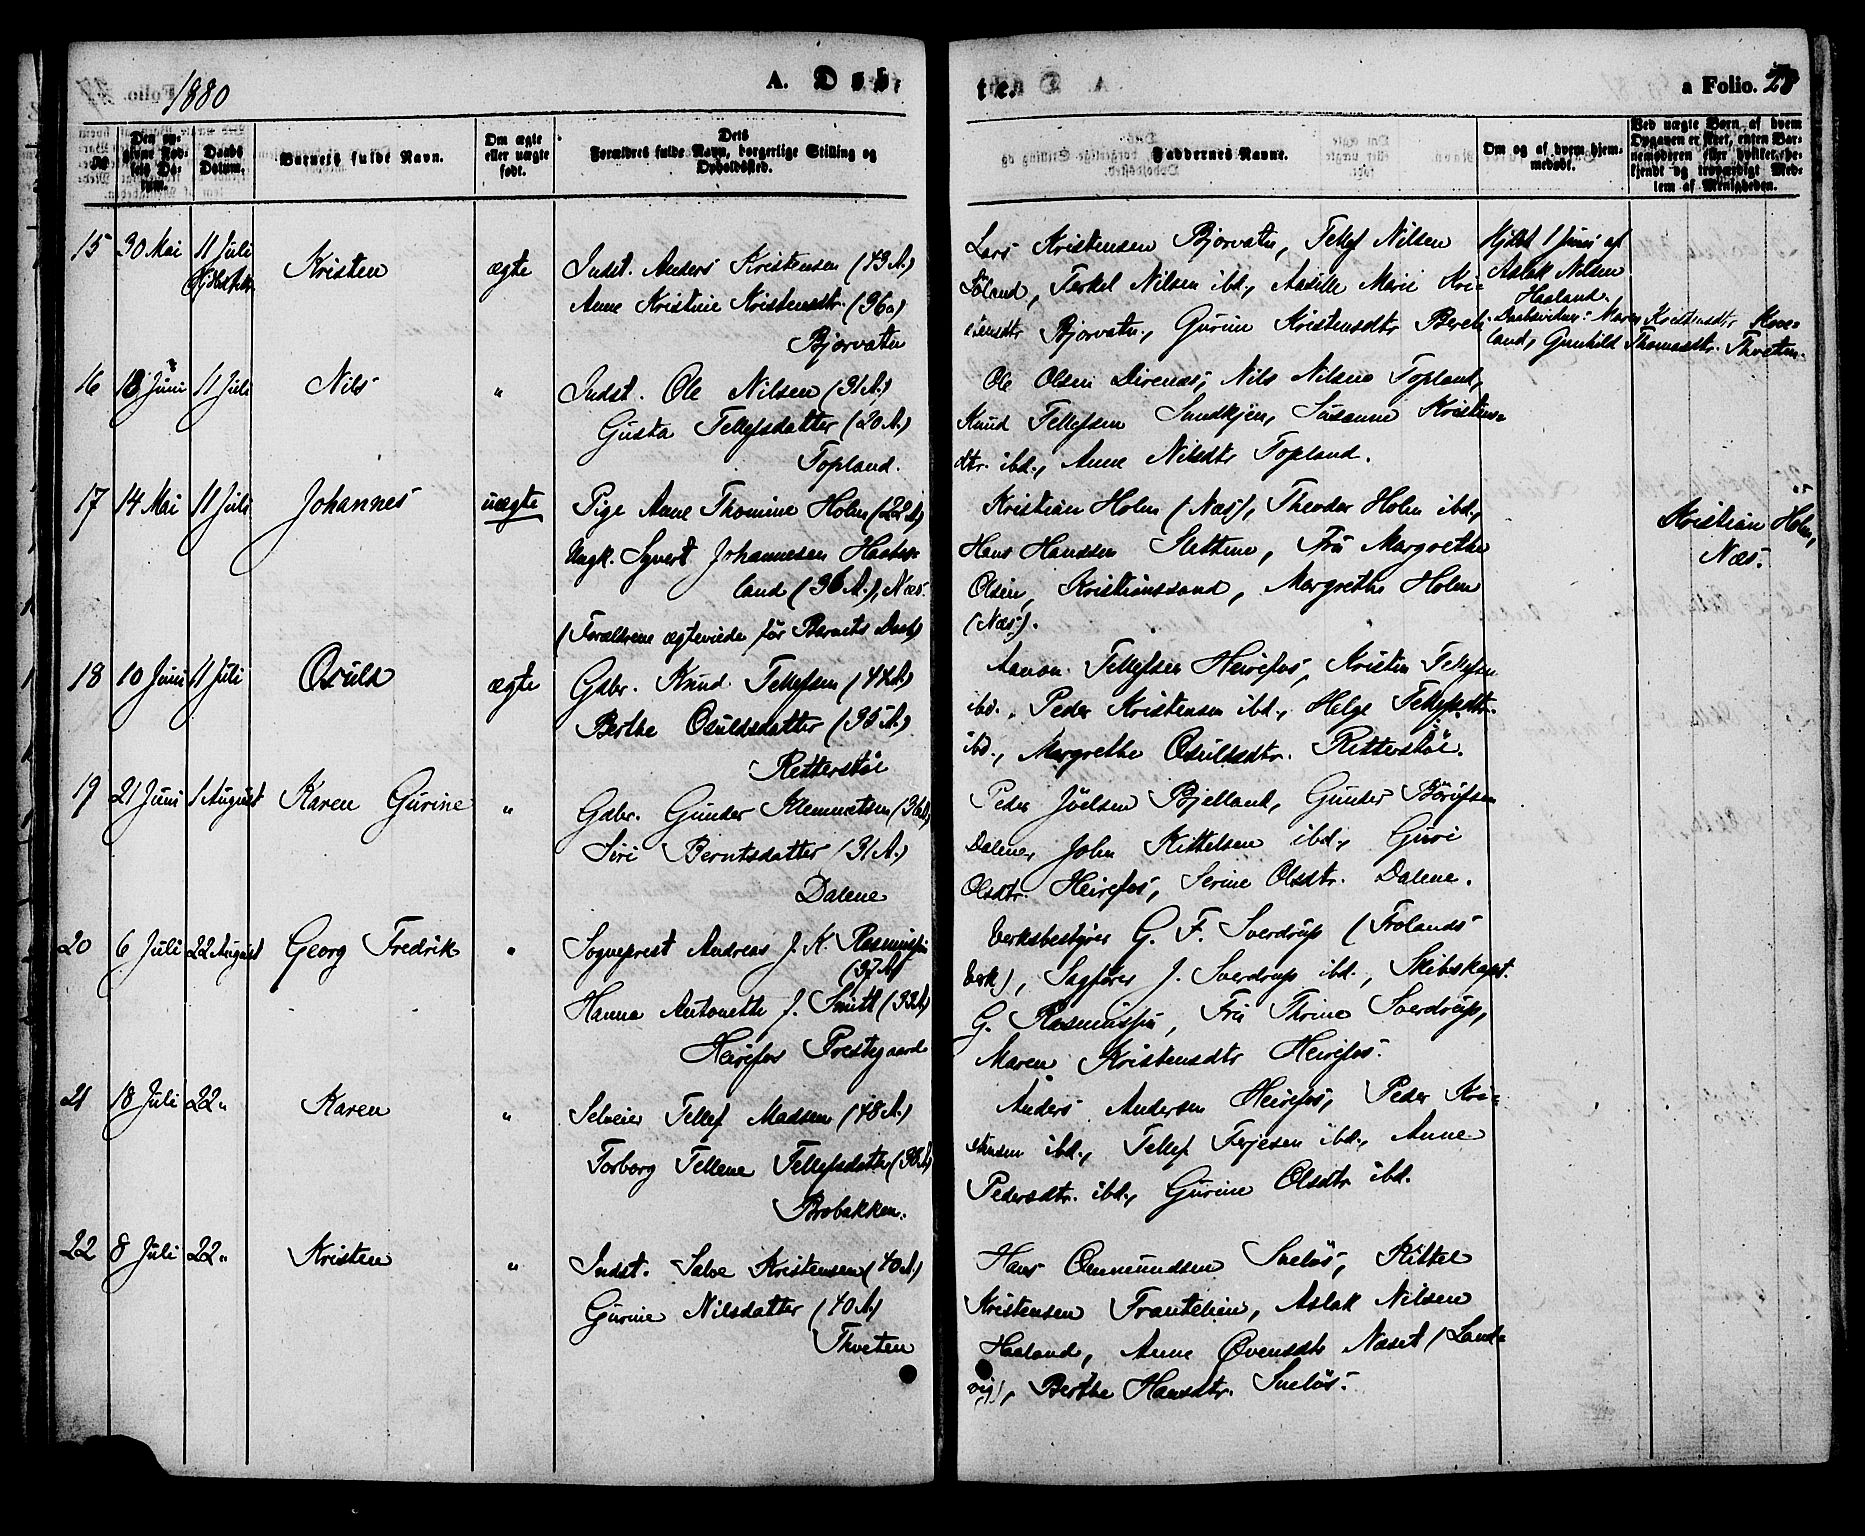 1880
A. Døb-
te.
a Folio. 28
No
Den op-
givne Fød-
sels Da-
tum.
Daabs
Datum.
Barnets fulde Navn.
Om ægte
eller uægte
født.
Dets
Forældres fulde Navn, borgerlige Stilling og
Opholdssted.
Faddernes Navne.
Om og af hvem hjem-
medøbt.
Ved uægte Børn af hvem
Opgaven er skeet, enten Bar-
nemoderen eller hvilket be-
kjendt og troværdigt Med-
lem af Menigheden.
15 30 Mai 11 Juli Kristen ægte Indst. Anders Kristensen (43 A.)
Anne Kristine Kristensdtr. (36 a)
Bjorvatn
Lars Kristensen Bjorvatn, Tellef Nilsen
Terkel Nilsen ibd., Marie Kri-
stensdtr Bjorvatn, Gurine Kristensdtr
Hjdbt 1 Juni af
Aslak Nilsen
Haaland.
Kristensdtr
land, Gunhild Thomasdtr. Thveten.
16 Juni 11 Juli Nils " Indst. Ole Nilsen (31 A.)
Gusta Tellefsdatter (20 A.)
Topland.
Ole Olsen Nils Nilsen Topland,
Knud Tellefsen Susanne Kristens-
dtr. ibd., Anne Nilsdtr Topland.
17 14 Mai 11 Juli Johannes uægte Pige Anne Thomine Holm (22 A.)
Ungk. Syvert Johannesen
land (36 A.), Næs.
(Forældrene ægteviede før Barnets Daab)
Kristian Holm (Næs), Theodor Holm ibd.,
Hans Hanssen Slettene, Fru Margrethe
Olsen, Kristianssand, Margrethe Holm
(Næs).
Kristian Holm,
Næs.
18 10 Juni 11 Juli Osuld ægte Gdbr. Knud Tellefsen (44 A.)
Berthe Osuldsdatter (35 A.)
Retterstøl
Aanon Tellefsen Heirefos, Kristen Tellefsen
ibd., Peder Kristensen ibd., Helge Tellefsdtr.
ibd., Margrethe Osuldsdtr. Retterstøl.
19 21 Juni 1 August Karen Gurine " Gdbr. Gunder Klemmetsen (36 A)
Siri Berntsdatter (31 A.)
Dalene
Peder Joelsen Bjelland, Gunder
Dalene, John Kittelsen ibd., Guri
Olsdtr. Heirefos, Serine Olsdtr. Dalene.
20 6 Juli 22 August Georg Fredrik " Sogneprest Andreas J. K. Rasmussen
(37 A)
Hanna Antonette J. Smitt (33 A)
Heirefos Prestegaard
Verksbestyrer G. F. Sverdrup (Frolands
Verk), Sagfører J. Sverdrup ibd., Skibskapt.
G. Rasmussen, Fru Thrine Sverdrup,
Maren Kristensdtr Heirefos.
21 18 Juli 22 " Karen " Selveier Tellef Madsen (48 A.)
Torborg Tellene Tellefsdatter (38 A)
Brobakken.
Anders Andersen Heirefos, Peder Kri-
stensen ibd., Tellef Terjesen ibd., Anne
Pedersdtr. ibd., Gurine Olsdtr ibd.
22 8 Juli 22 " Kristen " Indst. Salve Kristensen (40 A)
Gurine Nilsdatter (40 A.)
Thveten
Hans Omundsen Sneløs, Kittel
Kristensen Aslak Nilsen
Haaland, Anne Øvensdtr Næset (Land-
vig), Berthe Hansdtr. Sneløs.